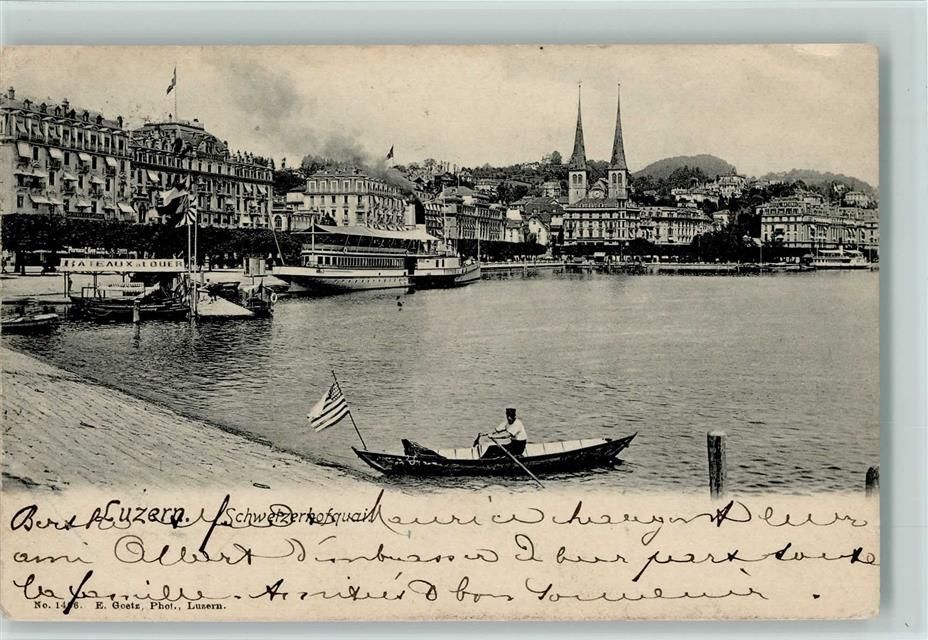 BATEAUX à LOUER
Luzern. Schweizerhofquai
Berthe et Maurice chargent leur
ami Albert d'embrasser d leur part toute
la famille. Amitiés & bon Souvenir.
No. 1496. E. Goetz, Phot., Luzern.